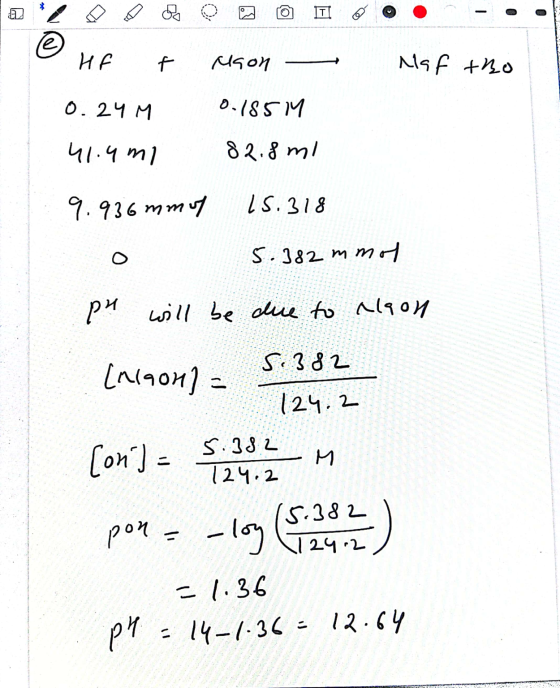 (e)
HF + NaOH ⟶ NaF + H2O
0.24 M 0.185 M
41.4 ml 82.8 ml
9.936 mmol 15.318
0 5.382 mmol
pH will be due to NaOH
[NaOH] = 5.382 / 124.2
[OH⁻] = 5.382 / 124.2 M
pOH = -log (5.382 / 124.2)
= 1.36
pH = 14-1.36 = 12.64